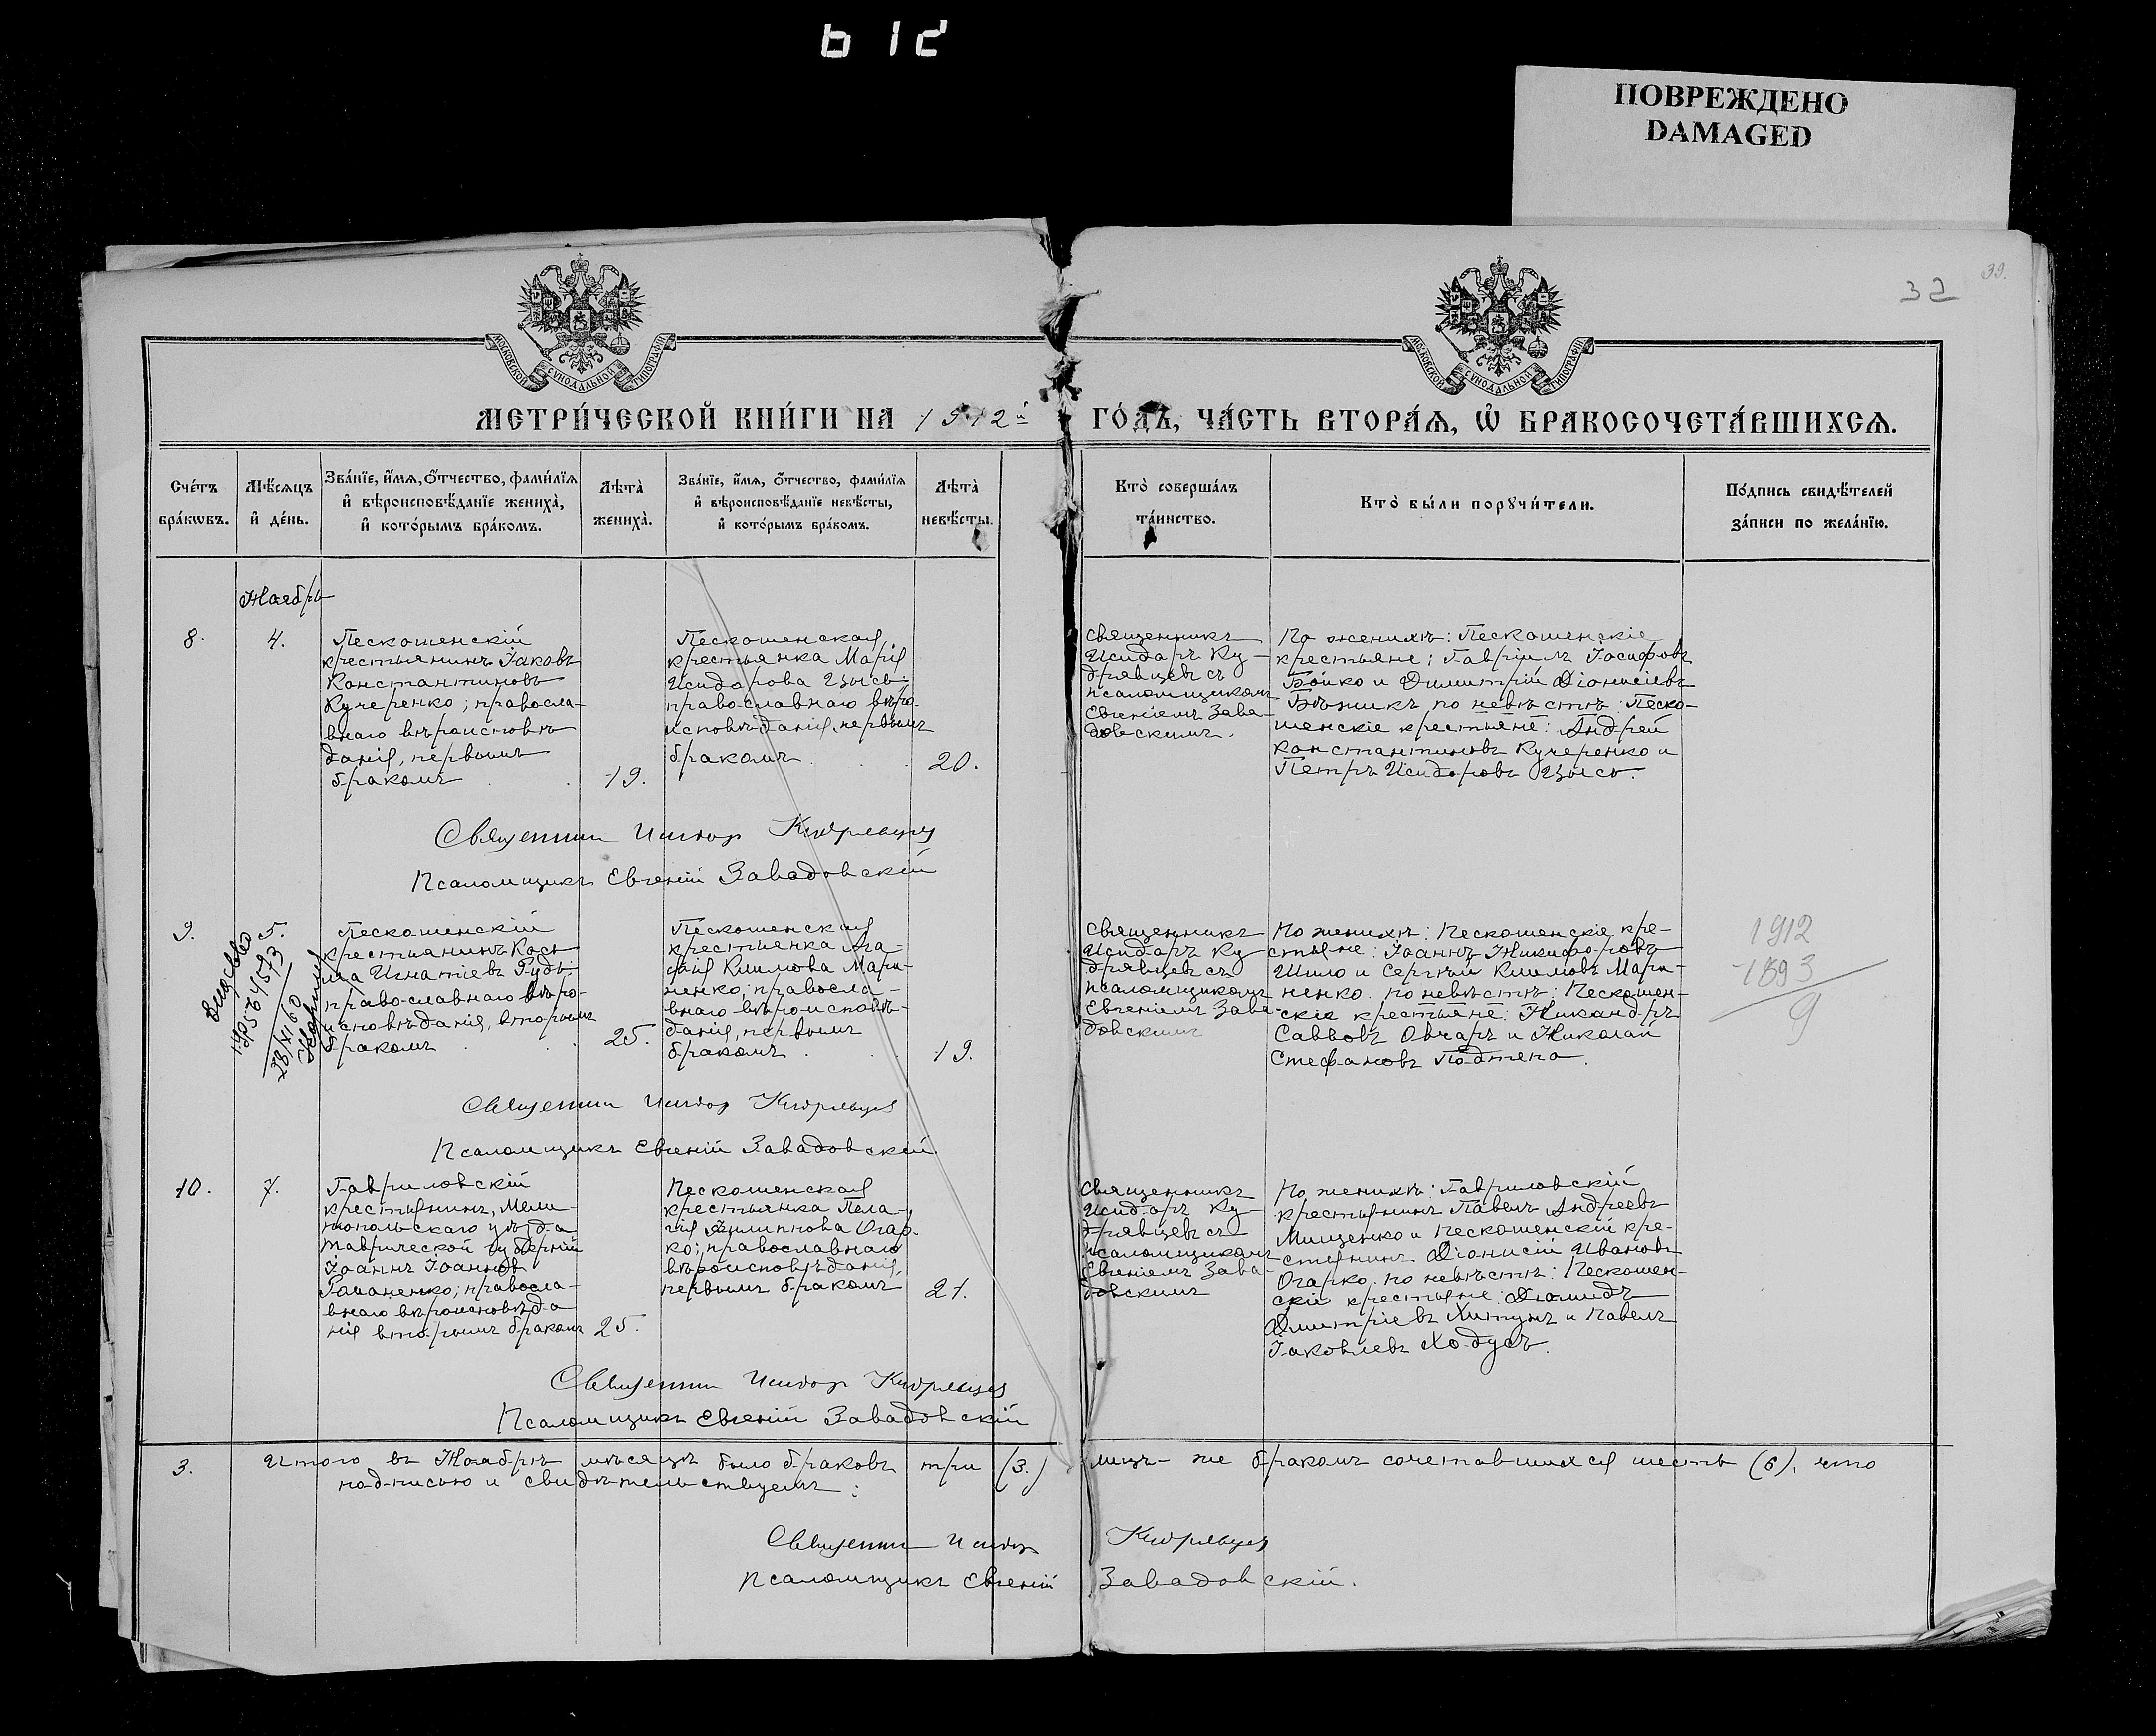 612
ПОВРЕЖДЕНО
DAMAGED
32
МОСКОВСКОЙ СѴНОДАЛЬНОЙ ТИПОГРАФІИ
МОСКОВСКОЙ СѴНОДАЛЬНОЙ ТИПОГРАФІИ
МЕТРИ́ЧЕСКОЙ КНИ́ГИ НА 1912й ГО́ДЪ, ЧА́СТЬ ВТОРА́Ѧ, Ѽ БРАКОСОЧЕТА́ВШИХСѦ.
Сче́тъ
бра́кѡвъ.
Мѣ́сѧцъ
и҆ де́нь.
Зва́нїе, и҆́мѧ, ѻ҆́тчество, фами́лїѧ
и҆ вѣроисповѣ́данїе жениха̀,
и҆ кото́рымъ бра́комъ.
Лѣ́та
жениха̀.
Зва́нїе, и҆́мѧ, ѻ҆́тчество, фами́лїѧ
и҆ вѣроисповѣ́данїе невѣ́сты,
и҆ кото́рымъ бра́комъ.
Лѣ́та
невѣ́сты.
Кто̀ соверша́лъ
та́инство.
Кто̀ бы́ли порꙋчи́тели.
По́дпись свидѣ́телей
за́писи по жела́нїю.
Ноябрь
8.
4.
Пескошенскій
крестьянинъ Іаковъ
Константиновъ
Кучеренко; правосла-
внаго вѣроисповѣ
данія, первымъ
бракомъ
19.
Пескошенская
крестьянка Марія
Исидорова Цысь
православнаго вѣро-
исповѣданія, первымъ
бракомъ
20.
Священникъ
Исидоръ Ку-
дрявцевъ съ
псаломщикомъ
Евгеніемъ Зава-
довскимъ.
По женихѣ: Пескошенскіе
крестьяне: Гавріилъ Іосифовъ
Бойко и Димитрій Діонисіевъ
по невѣстѣ: Песко-
шенскіе крестьяне: Андрей
Константиновъ Кучеренко и
Петръ Исидоровъ Цысь.
Священник Исидор Кудрявцев
Псаломщикъ Евгеній Завадовскій
9.
5.
28/XI 60
Пескошенскій
крестьянинъ Косъ
ма Игнатіевъ Рудь:
православнаго вѣро-
исповѣданія, вторымъ
бракомъ
25.
Пескошенская
крестьянка Ага-
фія Климова Мари-
ненко; правосла-
внаго вѣроисповѣ-
данія, первымъ
бракомъ
19.
Священникъ
Исидоръ Ку-
дрявцевъ съ
псаломщикомъ
Евгеніемъ Зава-
довскимъ
По женихѣ: Пескошенскіе кре-
стьяне: Іоаннъ Никифоровъ
Шило и Сергѣй Климовъ Мари-
ненко. по невѣстѣ: Пескошен-
скіе крестьяне: Никандръ
Саввовъ Овчаръ и Николай
Стефановъ
1912
1893
9
Священник Исидор Кудрявцев
Псаломщикъ Евгеній Завадовскій.
10.
7.
Гавриловскій
крестьянинъ, Мели-
топольскаго уѣзда
Таврической губерніи
Іоаннъ Іоанновъ
правосла-
внаго вѣроисповѣда
нія вторымъ бракомъ
25.
Пескошенская
крестьянка Пела-
гія Филиппова Огар-
ко; православнаго
вѣроисповѣданія,
первымъ бракомъ
21.
Священникъ
Исидоръ Ку-
дрявцевъ съ
псаломщикомъ
Евгеніемъ Зава-
довскимъ
По женихѣ: Гавриловскій
крестьянинъ Павелъ Андреевъ
Мищенко и Пескошенскій кре-
стьянинъ Діонисій Ивановъ
Огарко. по невѣстѣ: Пескошен-
скіе крестьяне: Діомидъ
Димитріевъ Хитунъ и Павелъ
Іаковлевъ Ходусъ.
Священник Исидор Кудрявцев
Псаломщикъ Евгеній Завадовскій
3.
Итого въ Ноябрѣ мѣсяцѣ было браковъ три (3.) лицъ-же бракомъ сочетавшихся шесть (6), что
надписью и свидѣтельствуемъ:
Священник Исидор Кудрявцев
Псаломщикъ Евгеній Завадовскій.